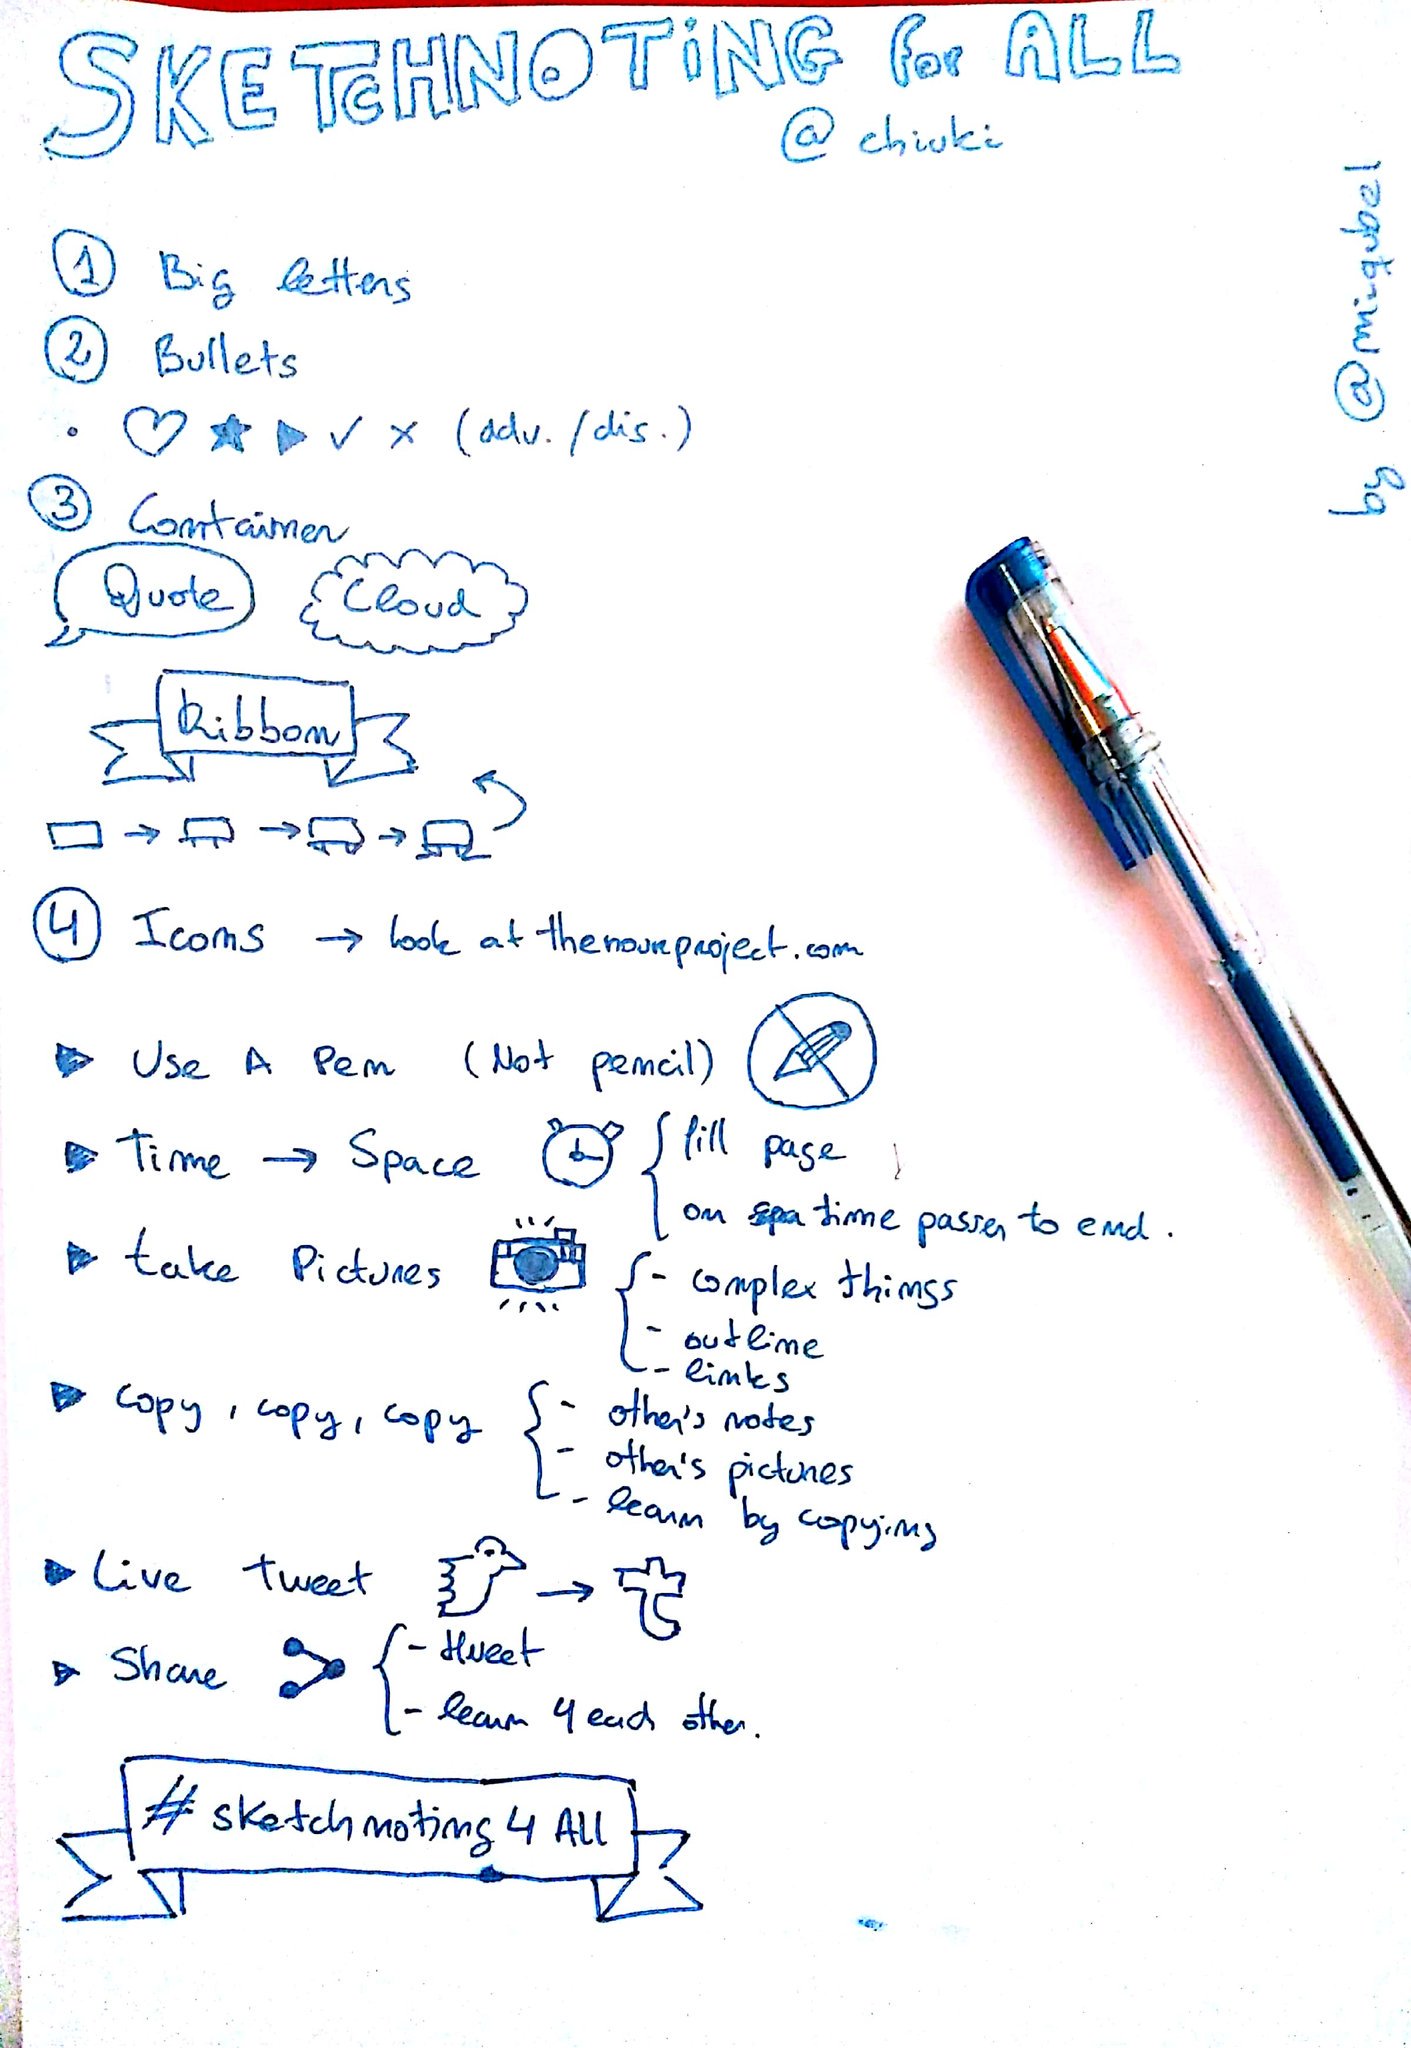 SKETCHNOTING for ALL
@chiuki
by @miqubel
1 Big letters
2 Bullets
(adv. / dis.)
3 Container
Quote
Cloud
Ribbon
4 Icons → look at thenounproject.com
Use A Pen (Not pencil)
Time → Space
fill page
on time passes to end.
take Pictures
- complex things
- outline
- links
copy, copy, copy
- other's notes
- other's pictures
- learn by copying
Live tweet →
Share
- tweet
- learn 4 each other.
# sketchnoting 4 All